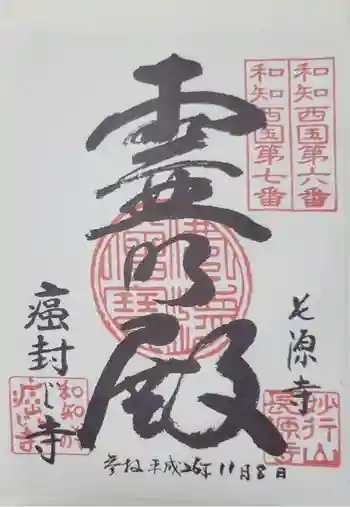 和知西国第六番
和知西国第七番
長源寺
妙行山
長源寺
霊明殿
癌封じ寺
和知の
癌封じ寺
参拝 平成26年11月8日